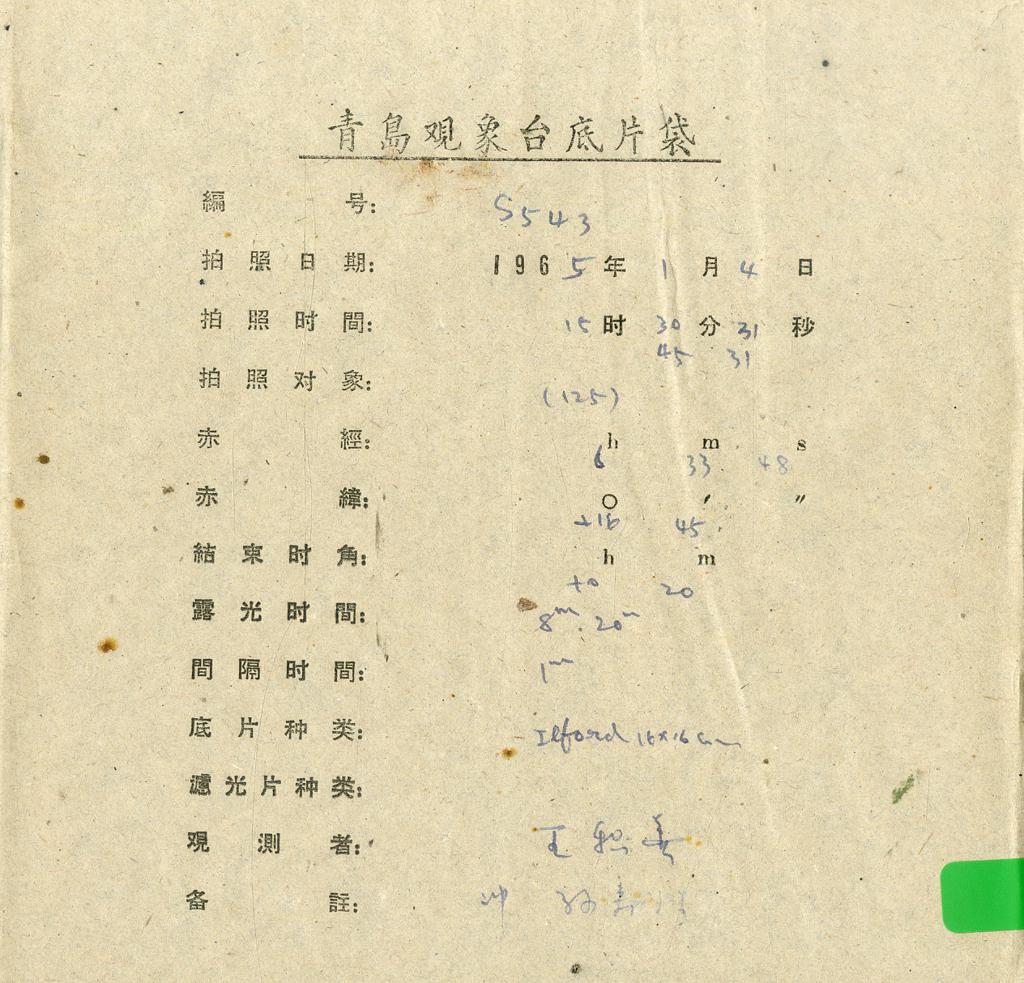 青島观象台底片袋
編号: S543
拍照日期: 1965年1月4日
拍照时間: 15时30分31秒
45 31
拍照对象: (125)
赤經: h m s
6 33 48
赤緯: ○ ′ ″
+16 45
結束时角: h m
+0 20
露光时間: 8m. 20m
間隔时間: 1m
底片种类: Ilford 16x16cm
濾光片种类:
观測者: 王熙善
备註: 冲